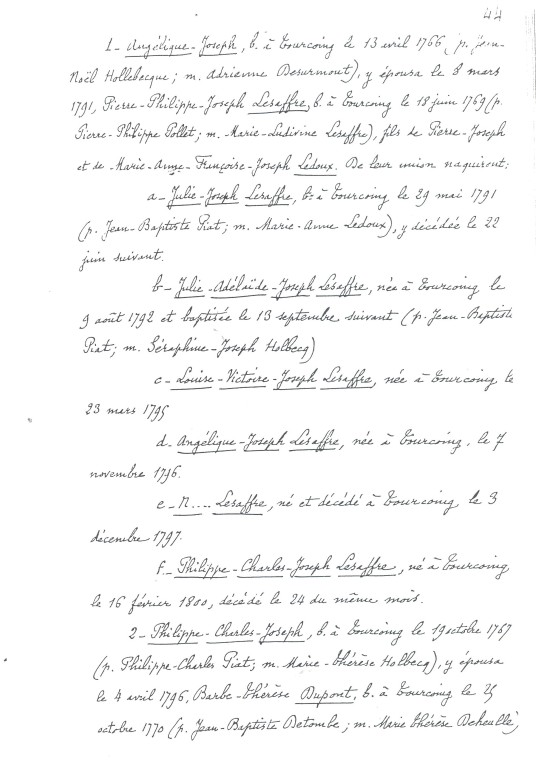 44
1_ Angélique-Joseph, b. à Tourcoing le 13 avril 1766 (p. Jean-
Noël Hollebecque; m. Adrienne Desurmont), y épousa le 8 mars
1791, Pierre-Philippe-Joseph Lesaffre, b. à Tourcoing le 18 juin 1769 (p.
Pierre-Philippe Pollet; m. Marie-Ludivine Lesaffre), fils de Pierre-Joseph
et de Marie-Anne-Françoise-Joseph Ledoux. De leur union naquirent:
a_ Julie-Joseph Lesaffre, b. à Tourcoing le 29 mai 1791
(p. Jean-Baptiste Piat; m. Marie-Anne Ledoux), y décédée le 22
juin suivant.
b_ Julie-Adélaïde-Joseph Lesaffre, née à Tourcoing le
9 août 1792 et baptisée le 13 septembre suivant (p. Jean-Baptiste
Piat; m. Séraphine-Joseph Holbecq)
c_ Louise-Victoire-Joseph Lesaffre, née à Tourcoing le
23 mars 1795
d_ Angélique-Joseph Lesaffre, née à Tourcoing, le 7
novembre 1796.
e_ N.... Lesaffre, né et décédé à Tourcoing, le 3
décembre 1797.
f_ Philippe-Charles-Joseph Lesaffre, né à Tourcoing
le 16 février 1800, décédé le 24 du même mois.
2_ Philippe-Charles-Joseph, b. à Tourcoing le 19 octobre 1767
(p. Philippe-Charles Piat; m. Marie-Thérèse Holbecq), y épousa
le 4 avril 1796, Barbe-Thérèse Dupont, b. à Tourcoing le 25
octobre 1770 (p. Jean-Baptiste Detombe; m. Marie Thérèse Deheulle,